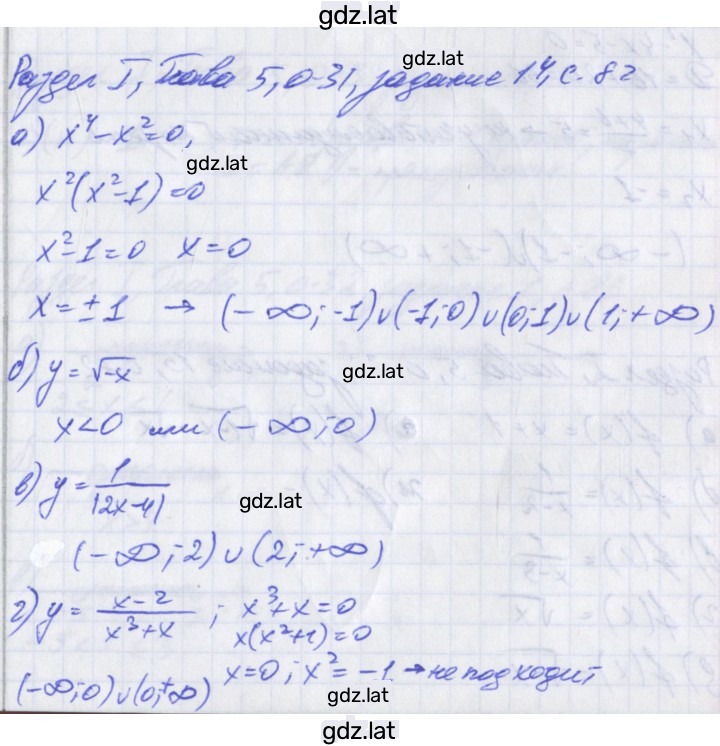 gdz.lat
gdz.lat
Раздел I, Глава 5, О-31, задание 14, с. 82
а) x⁴ - x² = 0,
gdz.lat
x²(x²-1) = 0
x²-1=0 x=0
x=±1 → (-∞;-1)∪(-1;0)∪(0;1)∪(1;+∞)
б) y=√-x gdz.lat
x<0 или (-∞;0)
в) y=1/|2x-4| gdz.lat
(-∞;2)∪(2;+∞)
г) y= x-2/x³+x ; x³+x=0
x(x²+1)=0
x=0; x²=-1 → не подходит
(-∞;0)∪(0;+∞)
gdz.lat
gdz.lat